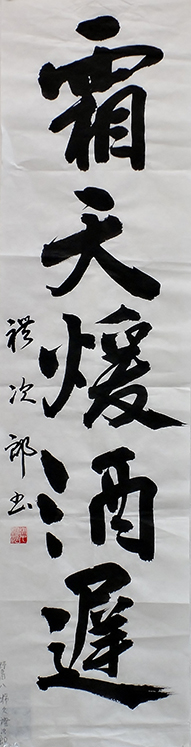 霜天煖酒遲
禮次郎書